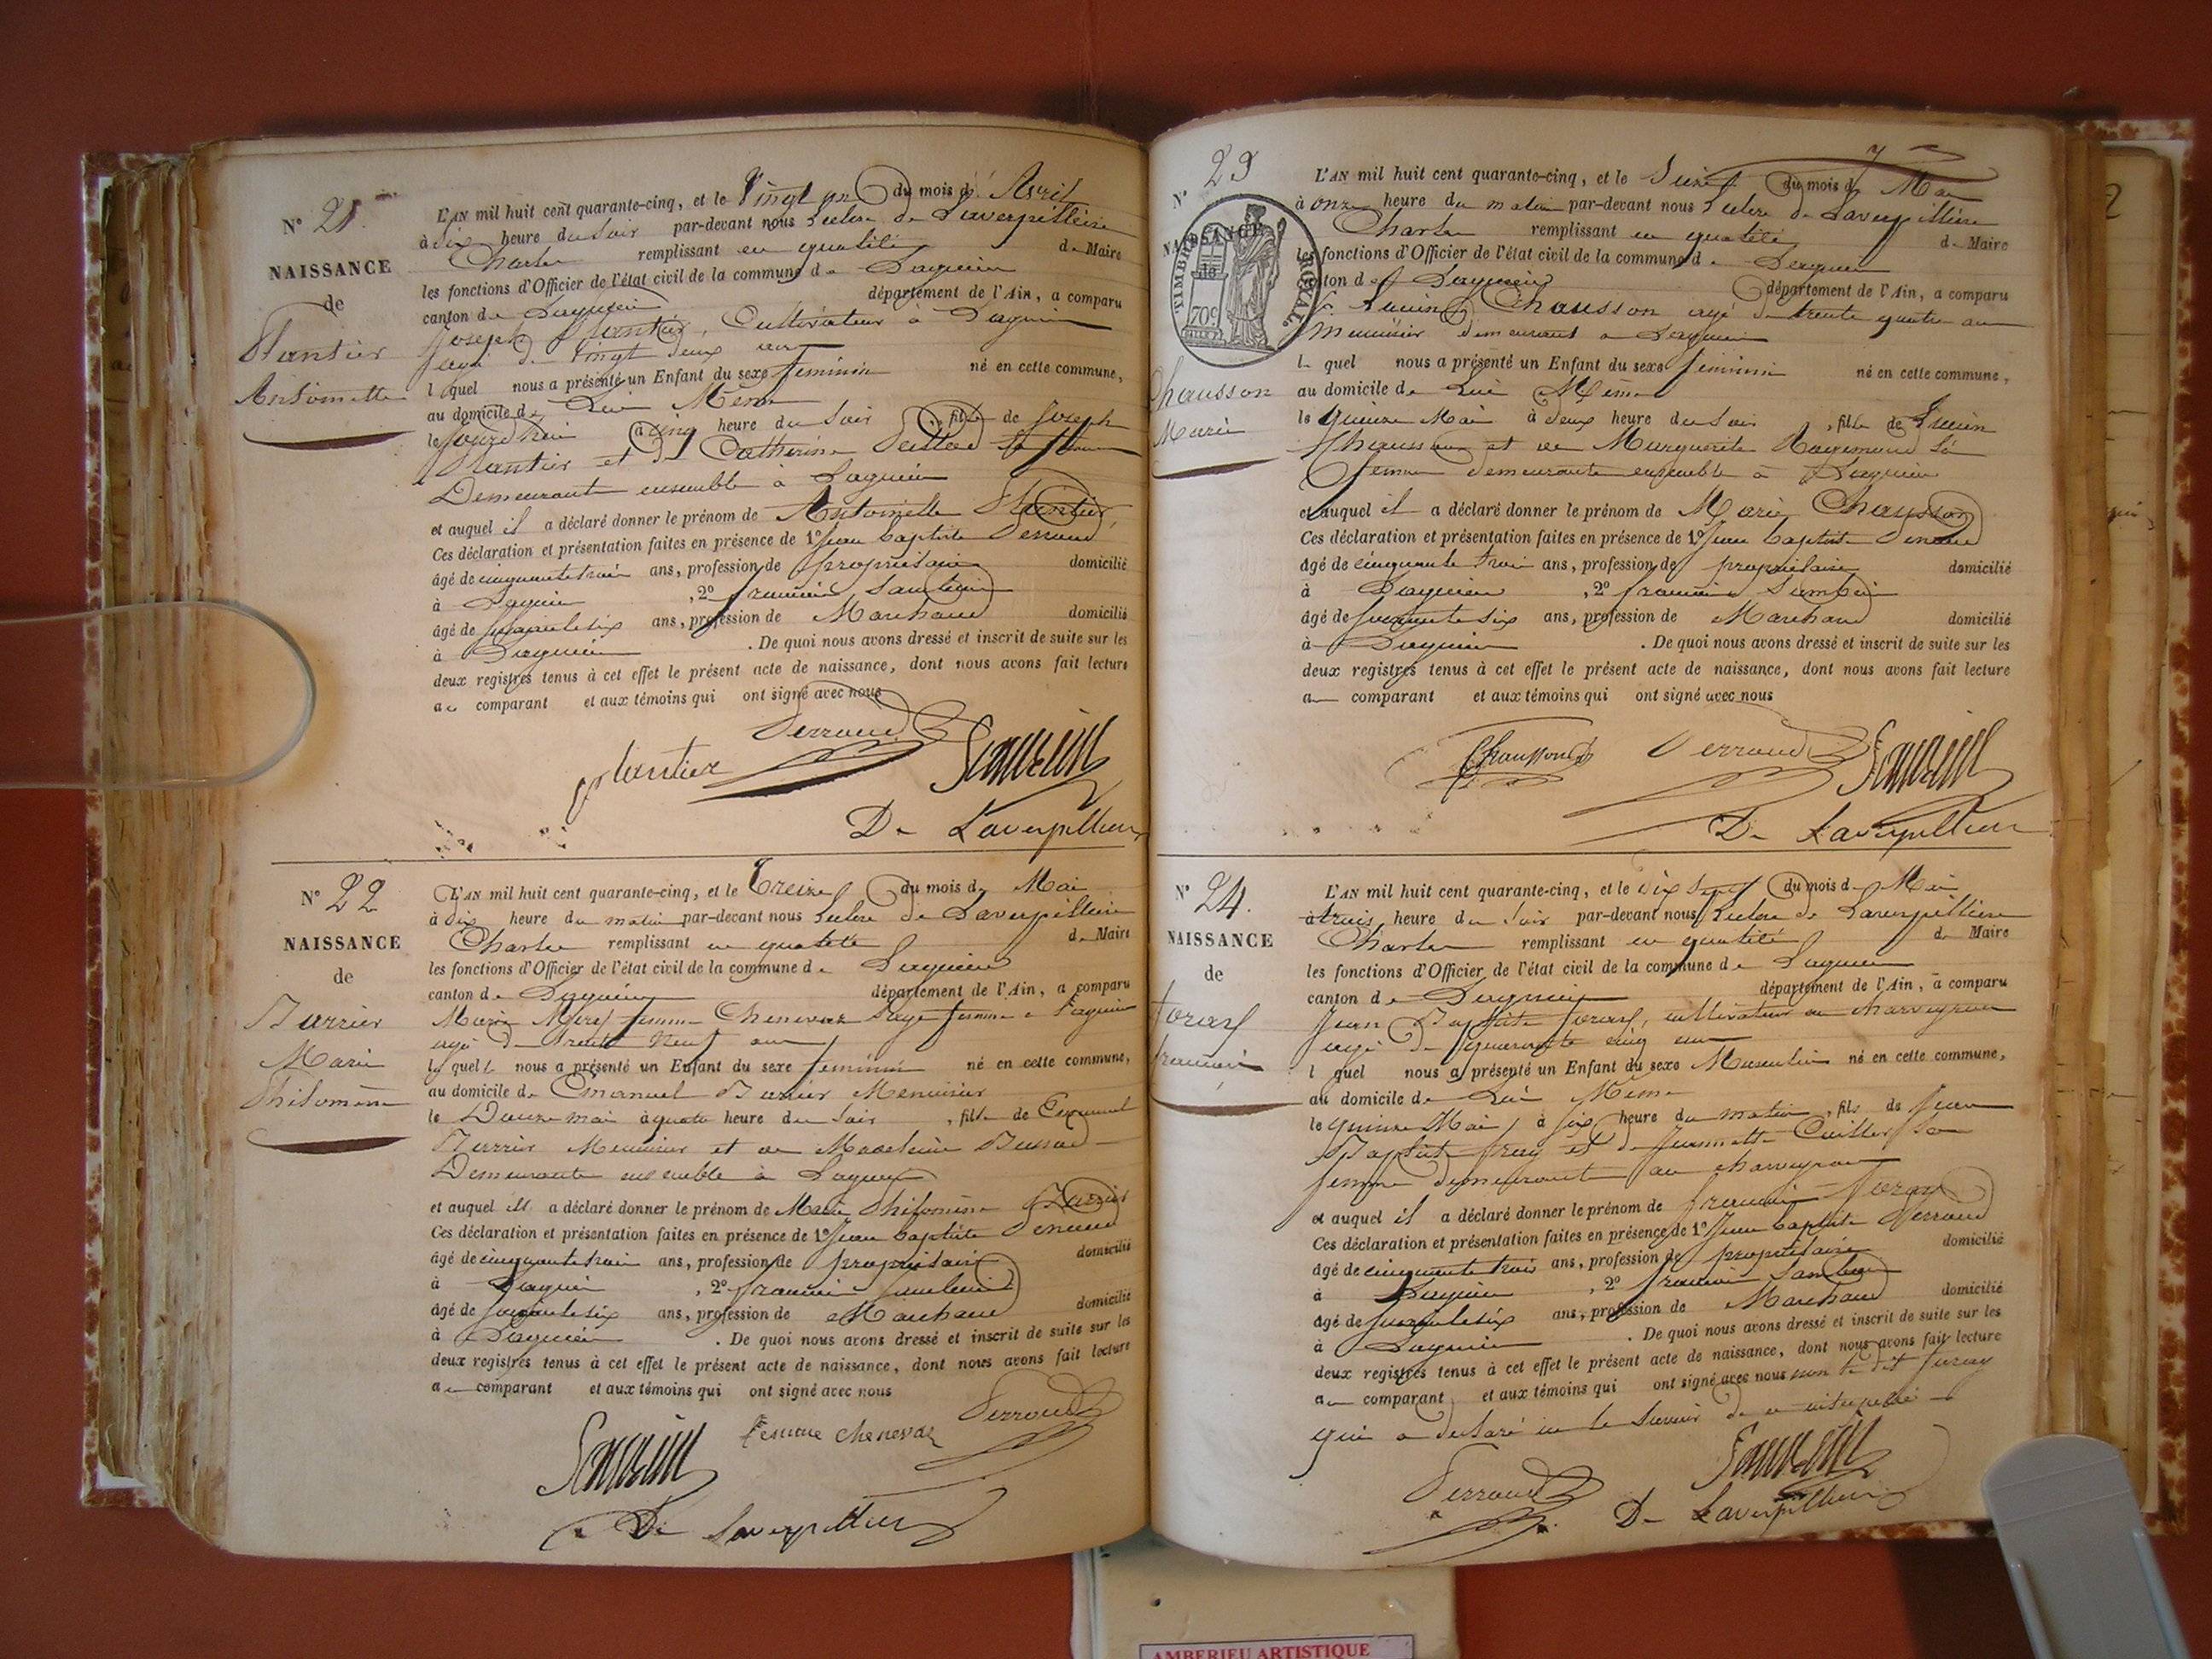 N° 21.
NAISSANCE
de
Plantier
Antoinette
L'AN mil huit cent quarante-cinq, et le Vingt un du mois d' Avril
à Six heure du Soir par-devant nous Leclerc de Laverpillière
Charles remplissant en qualité de Maire
les fonctions d'Officier de l'état civil de la commune de Lagnieu
canton de Lagnieu département de l'Ain, a comparu
Joseph Plantier, Cultivateur à Lagnieu
âgé de Vingt deux ans
lequel nous a présenté un Enfant du sexe féminin né en cette commune,
au domicile de Lui Même
le jourd'hui à cinq heure du Soir, fille de Joseph
Plantier et de Catherine sa femme
Demeurant ensemble à Lagnieu
et auquel il a déclaré donner le prénom de Antoinette Plantier,
Ces déclaration et présentation faites en présence de 1° Jean Baptiste Perroud
âgé de cinquante trois ans, profession de propriétaire domicilié
à Lagnieu, 2° françois
âgé de ans, profession de Marchand domicilié
à Lagnieu. De quoi nous avons dressé et inscrit de suite sur les
deux registres tenus à cet effet le présent acte de naissance, dont nous avons fait lecture
au comparant et aux témoins qui ont signé avec nous
Perroud
plantier
De Laverpilliere
N° 22
NAISSANCE
de
Marie
Philomène
L'AN mil huit cent quarante-cinq, et le Treize du mois de Mai
à dix heure du matin par-devant nous Leclerc de Laverpillière
Charles remplissant en qualité de Maire
les fonctions d'Officier de l'état civil de la commune de Lagnieu
canton de Lagnieu département de l'Ain, a comparu
Marie femme Chenevaz Sage femme à Lagnieu
âgé de trente Neuf ans
laquelle nous a présenté un Enfant du sexe féminin né en cette commune,
au domicile de Emanuel Menuisier
le Douze mai à quatre heure du Soir, fille de Emanuel
Menuisier et de Madeleine
Demeurants ensemble à Lagnieu
et auquel elle a déclaré donner le prénom de Marie Philomène
Ces déclaration et présentation faites en présence de 1° Jean Baptiste Perroud
âgé de cinquante trois ans, profession de propriétaire domicilié
à Lagnieu, 2° françois
âgé de ans, profession de Marchand domicilié
à Lagnieu. De quoi nous avons dressé et inscrit de suite sur les
deux registres tenus à cet effet le présent acte de naissance, dont nous avons fait lecture
au comparant et aux témoins qui ont signé avec nous
Perroud
femme chenevaz
De Laverpilliere
N° 23
NAISSANCE
de
TIMBRE ROYAL
70c
Chausson
Marie
L'AN mil huit cent quarante-cinq, et le Seize du mois de Mai
à onze heure du matin par-devant nous Leclerc de Laverpillière
Charles remplissant en qualité de Maire
les fonctions d'Officier de l'état civil de la commune de Lagnieu
canton de Lagnieu département de l'Ain, a comparu
Chausson âgé de trente quatre ans
Menuisier demeurant à Lagnieu
lequel nous a présenté un Enfant du sexe féminin né en cette commune,
au domicile de Lui Même
le Quinze Mai à deux heure du Soir, fille de
Chausson et de Marguerite Raymond Sa
femme demeurants ensemble à Lagnieu
et auquel il a déclaré donner le prénom de Marie Chausson
Ces déclaration et présentation faites en présence de 1° Jean Baptiste Perroud
âgé de cinquante trois ans, profession de propriétaire domicilié
à Lagnieu, 2° françois
âgé de ans, profession de Marchand domicilié
à Lagnieu. De quoi nous avons dressé et inscrit de suite sur les
deux registres tenus à cet effet le présent acte de naissance, dont nous avons fait lecture
au comparant et aux témoins qui ont signé avec nous
Chausson Perroud
De Laverpilliere
N° 24.
NAISSANCE
de
Joray
francois
L'AN mil huit cent quarante-cinq, et le dix Sept du mois de Mai
à trois heure du Soir par-devant nous Leclerc de Laverpillière
Charles remplissant en qualité de Maire
les fonctions d'Officier de l'état civil de la commune de Lagnieu
canton de Lagnieu département de l'Ain, a comparu
Jean Baptiste Joray, cultivateur au charveyron
âgé de quarante cinq ans
lequel nous a présenté un Enfant du sexe Masculin né en cette commune,
au domicile de Lui Même
le Quinze Mai à Six heure du matin, fils de Jean
Baptiste Joray et de Jeannette Cuillier Sa
femme demeurant au charveyron
et auquel il a déclaré donner le prénom de francois Joray
Ces déclaration et présentation faites en présence de 1° Jean Baptiste Perroud
âgé de cinquante trois ans, profession de propriétaire domicilié
à Lagnieu, 2° francois
âgé de ans, profession de Marchand domicilié
à Lagnieu. De quoi nous avons dressé et inscrit de suite sur les
deux registres tenus à cet effet le présent acte de naissance, dont nous avons fait lecture
au comparant et aux témoins qui ont signé avec nous non le dit Joray
qui a déclaré ne le Savoir de ce interpellé
Perroud
De Laverpilliere
AMBERIEU ARTISTIQUE